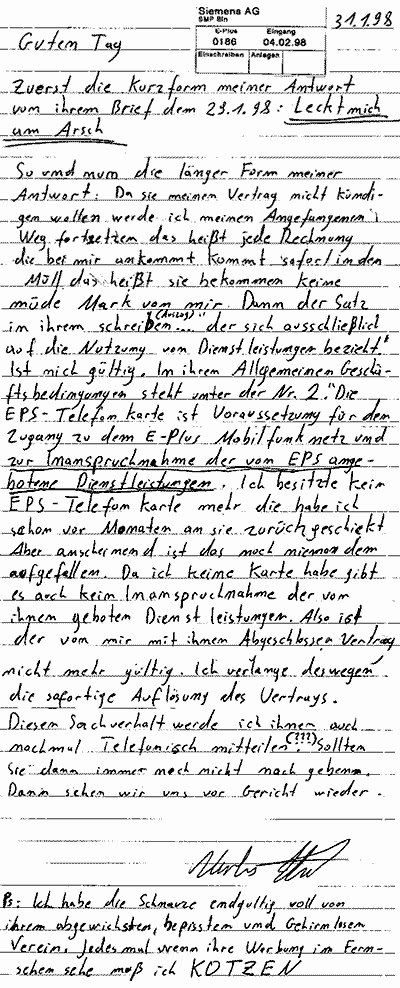 Siemens AG
SMP Bln
E-Plus Eingang
0186 04.02.98
Einschreiben Anlagen
31.1.98
Gutem Tag
Zuerst die Kurzform meiner Antwort
vom ihrem Brief dem 23.1.98: Leckt mich
am Arsch
So und nun die länger Form meiner
Antwort: Da sie meinen Vertrag nicht kündi-
gen wollen werde ich meinen Angefangenen
Weg fortsetzen das heißt jede Rechnung
die bei mir ankommt kommt sofort in den
Müll das heißt sie bekommen keine
müde Mark von mir. Dann der Satz
im ihrem schreiben (Auszug) "... der sich ausschließlich
auf die Nutzung von Dienstleistungen bezieht."
Ist nich gültig. Im ihrem Allgemeinen Geschä-
ftsbedingungen steht unter der Nr. 2. "Die
EPS-Telefon karte ist Voraussetzung für den
Zugang zu dem E-Plus Mobilfunk netz und
zur Inanspruchnahme der von EPS ange-
botene Dienstleistungen. Ich besitzte kein
EPS-Telefon karte mehr die habe ich
schon vor Monaten an sie zurückgeschickt
Aber anscheinend ist das noch niemandem
aufgefallen. Da ich keine Karte habe gibt
es auch keine Inanspruchnahme der von
ihnen geboten Dienst leistungen. Also ist
der von mir mit ihnen Abgeschlossen Vertrag
nicht mehr gültig. Ich verlange deswegen
die sofortige Auflösung des Vertrags.
Diesen Sachverhalt werde ich ihnen auch
nochmal Telefonisch mitteilen. (???) Sollten
Sie dann immer noch nicht nach geben.
Dann sehen wir uns vor Gericht wieder.
Ps: Ich habe die Schnauze endgültig voll von
ihrem abgewichsten, bepissten und Gehirnlosen
Verein. Jedes mal wenn ihre Werbung im Fern-
sehen sehe muß ich KOTZEN